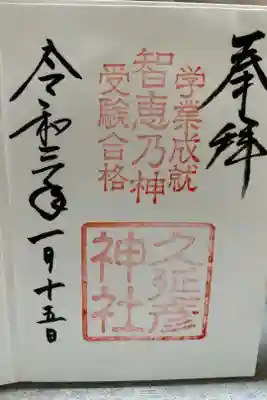 奉拝
学業成就
智恵乃神
受験合格
久延彦
神社
令和三年一月十五日